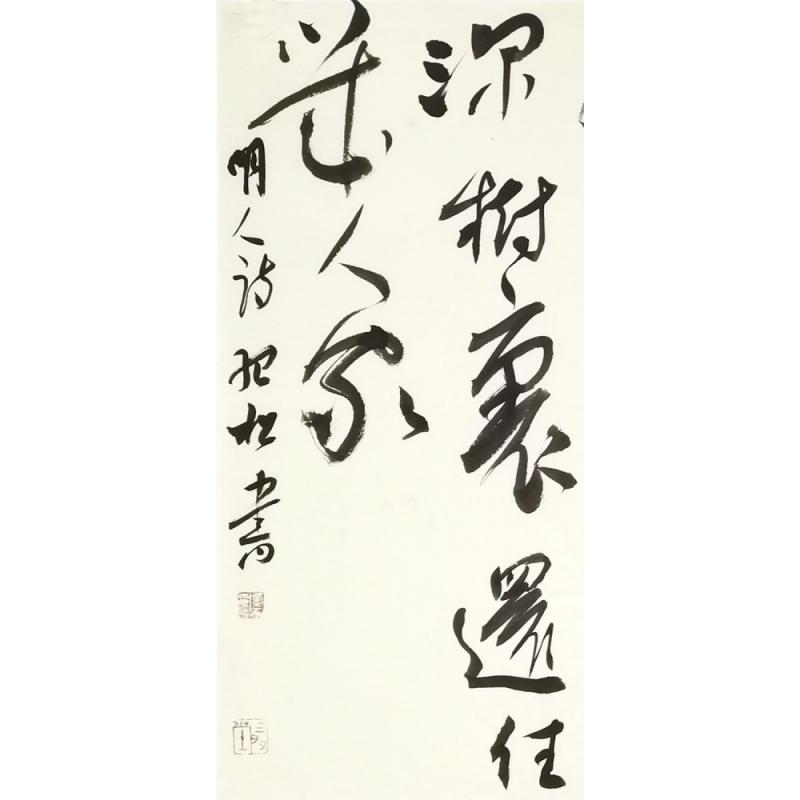 深樹裏還住
幾人家
明人詩 松書